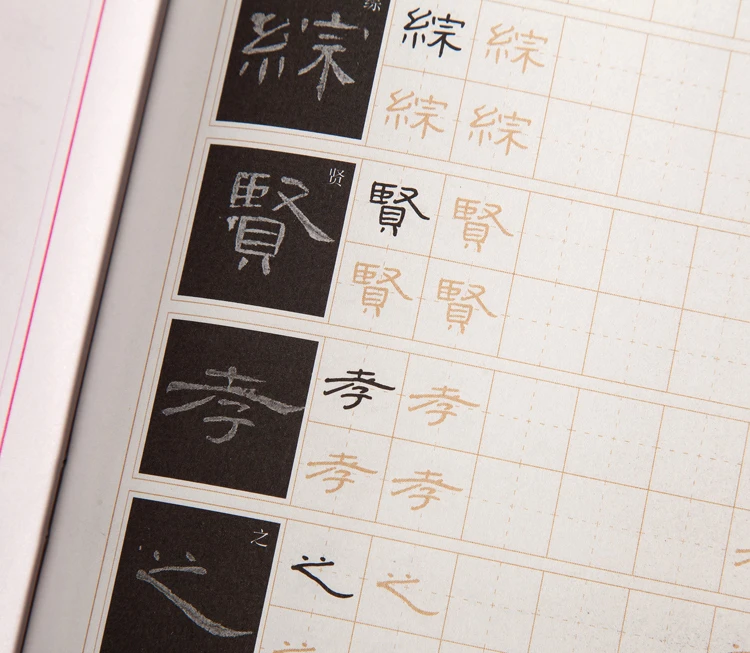 綜 综 綜 綜
綜 綜
賢 贤 賢 賢
賢 賢
孝 孝 孝
孝 孝
之 之 之 之